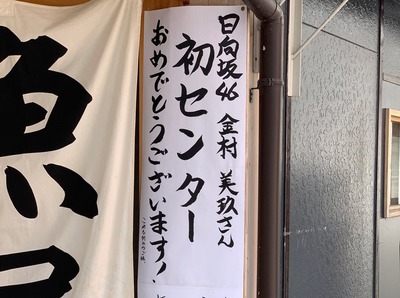 日向坂46 金村 美玖さん
初センター
おめでとうございます!